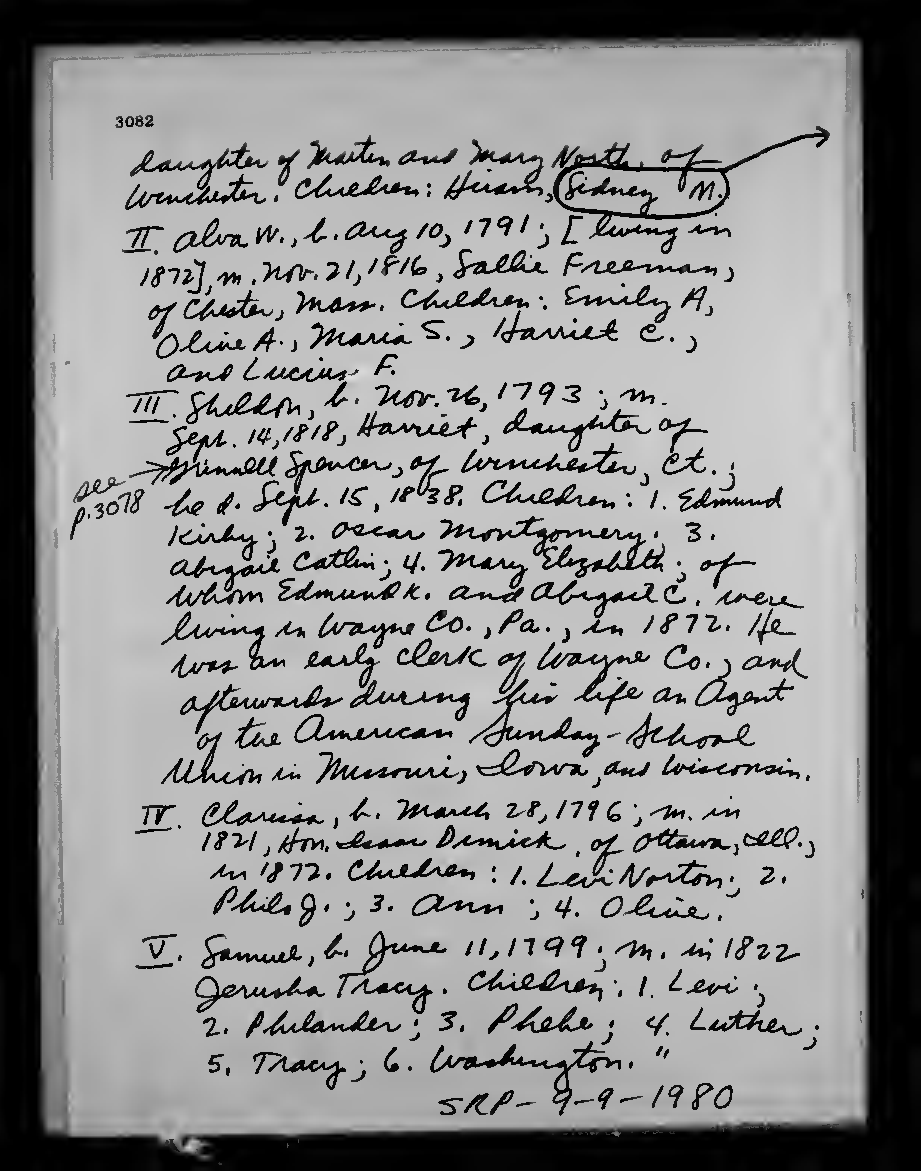 3082
daughter of Martin and Mary North, of
Winchester. Children: Hiram, Sidney M.
II. Alva W., b. Aug 10, 1791; [living in
1872], m. Nov. 21, 1816, Sallie Freeman,
of Chester, Mass. Children: Emily A,
Olive A., Maria S., Harriet C.,
and Lucius F.
III. Sheldon, b. Nov. 26, 1793; m.
Sept. 14, 1818, Harriet, daughter of
Grinnell Spencer, of Winchester, Ct.;
see p. 3078
he d. Sept. 15, 1838. Children: 1. Edmund
Kirby; 2. Oscar Montgomery; 3.
Abigail Catlin; 4. Mary Elizabeth; of
whom Edmund K. and Abigail C. were
living in Wayne Co., Pa., in 1872. He
was an early clerk of Wayne Co., and
afterwards during his life an Agent
of the American Sunday-School
Union in Missouri, Iowa, and Wisconsin.
IV. Clarissa, b. March 28, 1796; m. in
1821, Hon. Isaac Dimick, of Ottawa, Ill.,
in 1872. Children: 1. Levi Norton; 2.
Philo J.; 3. Ann; 4. Olive.
V. Samuel, b. June 11, 1799; m. in 1822
Jerusha Tracy. Children: 1. Levi;
2. Philander; 3. Phebe; 4. Luther;
5. Tracy; 6. Washington."
SRP-9-9-1980